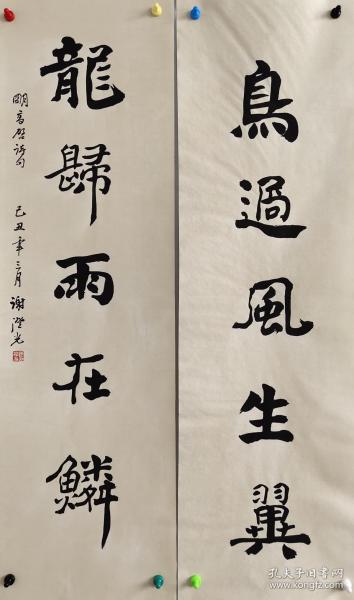 鳥過風生翼
龍歸雨在鱗
明高啟詩句
己丑年三月 謝澄光
孔夫子旧书网